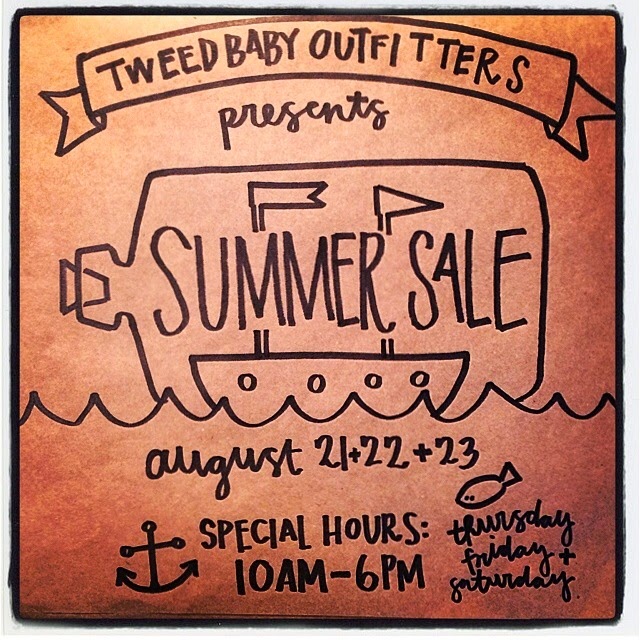 TWEED BABY OUTFITTERS
presents
SUMMER SALE
august 21+22+23
SPECIAL HOURS:
10AM-6PM
thursday
friday +
saturday.